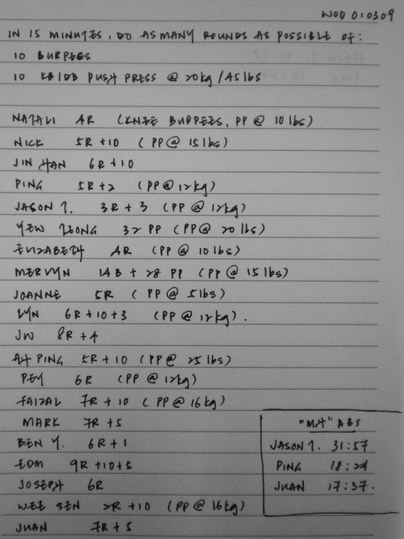 WOD 010309
IN 15 MINUTES, DO AS MANY ROUNDS AS POSSIBLE OF:
10 BURPEES
10 KB/DB PUSH PRESS @ 20kg/45lbs
NATALI 4R (KNEE BURPEES, PP @ 10lbs)
NICK 5R+10 (PP@ 15lbs)
JIN HAN 6R+10
PING 5R+2 (PP@12kg)
JASON T. 3R+3 (PP@12kg)
YEW LEONG 32 PP (PP@ 20 lbs)
ELIZABETH 4R (PP@ 10lbs)
MERVYN 14B + 28 PP (PP@ 15lbs)
JOANNE 5R (PP@ 5lbs)
LYN 6R+10+3 (PP@ 12kg).
JW 8R+4
AH PING 5R+10 (PP@ 25lbs)
PEY 6R (PP@ 12kg)
FAIZAL 7R+10 (PP@ 16kg)
MARK 7R+5
BEN Y. 6R+1
EDM 9R+10+5
JOSEPH 6R
WEE SEN 2R+10 (PP@ 16kg)
JUAN 7R+5
ABS
JASON T. 31:57
PING
JUAN 17:37.